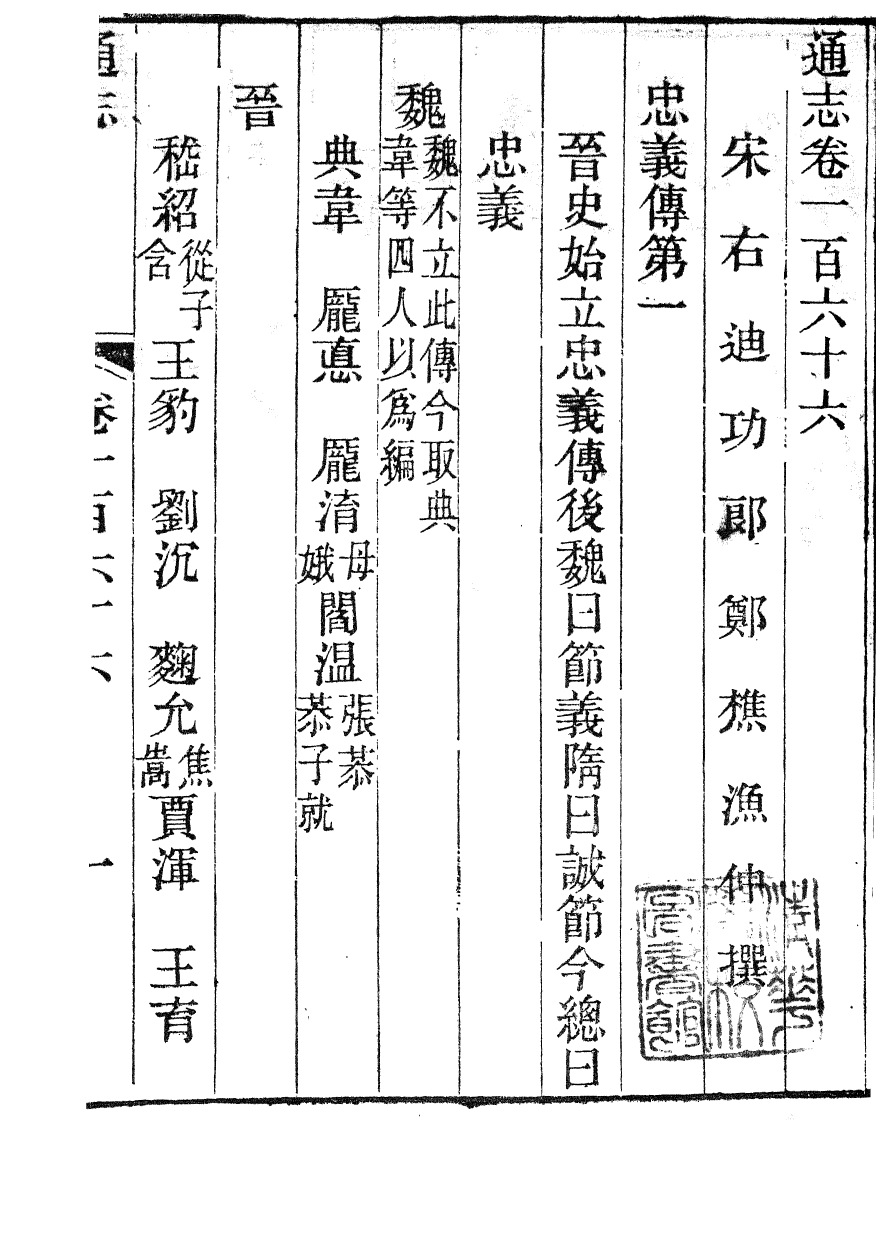 通志卷一百六十六
宋右迪功郎鄭樵漁仲撰
忠義傳第一
晉史始立忠義傳後魏曰節義隋曰誠節今總曰
忠義
魏魏不立此傳今取典韋等四人以爲編
典韋　龎悳　龎淯母娥閻温張恭恭子就
晉
嵇紹從子含王豹　劉沉　麴允焦嵩賈渾　王育
通志　卷一百六十六　一